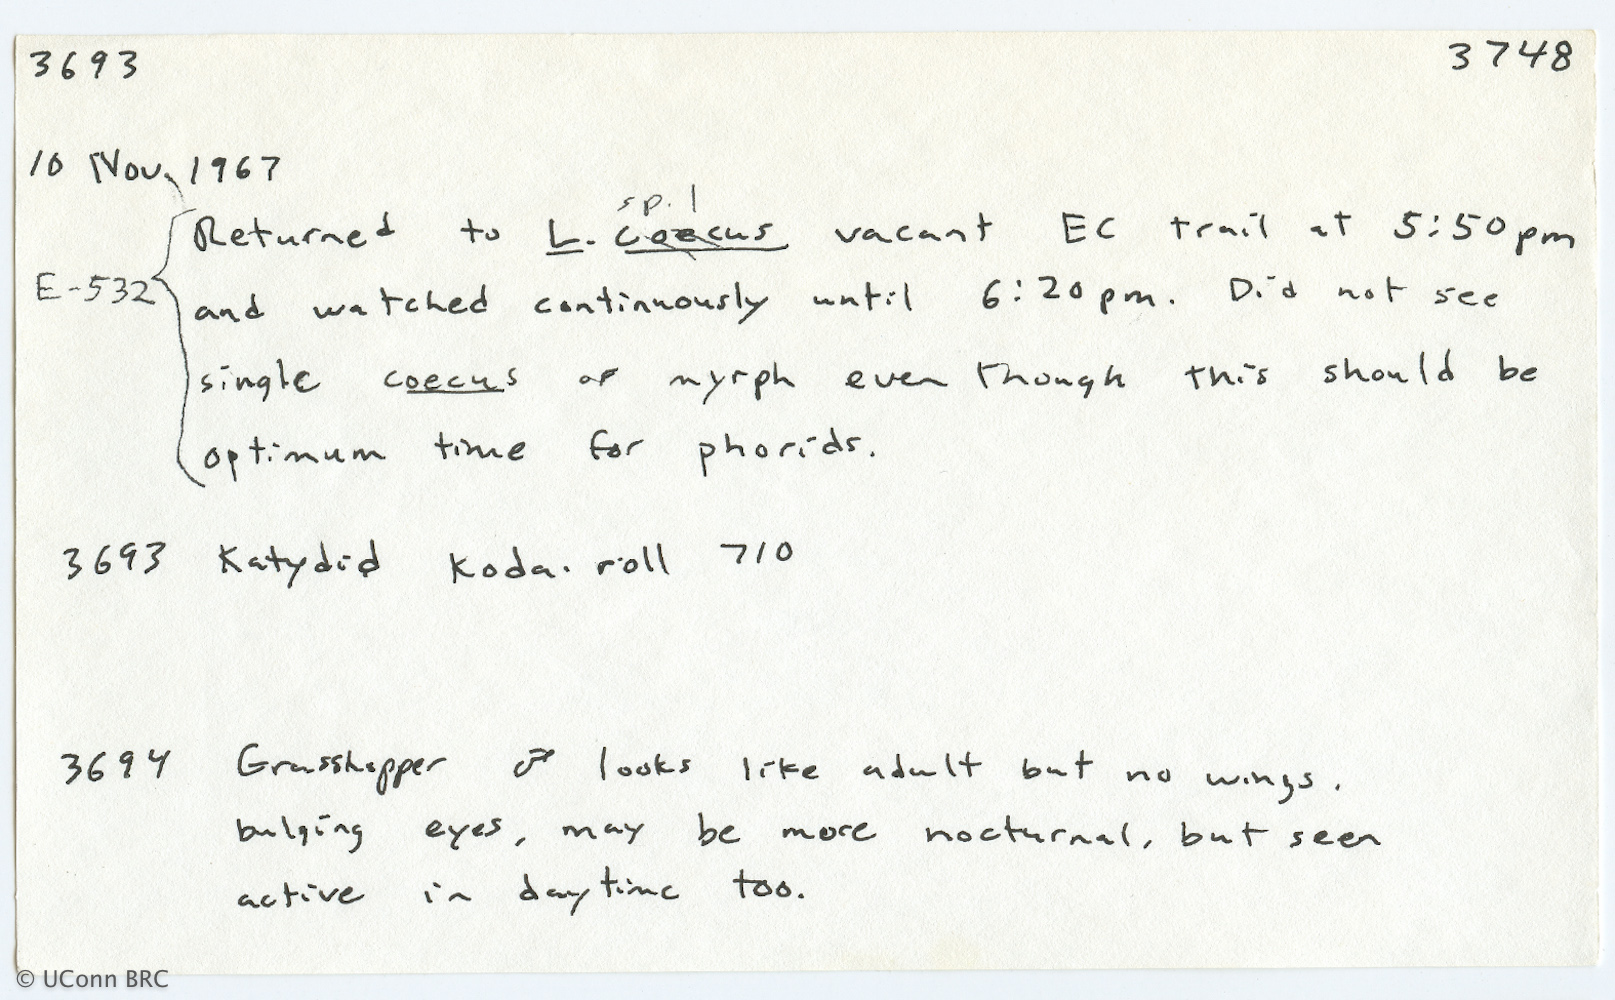 3693 3748
10 Nov. 1967
sp. 1
Returned to L. coecus vacant EC trail at 5:50pm
E-532 and watched continuously until 6:20pm. Did not see
single coecus or myrph even though this should be
optimum time for phorids.
3693 Katydid Koda. roll 710
3694 Grasshopper ♂ looks like adult but no wings.
bulging eyes, may be more nocturnal, but seen
active in daytime too.
© UConn BRC